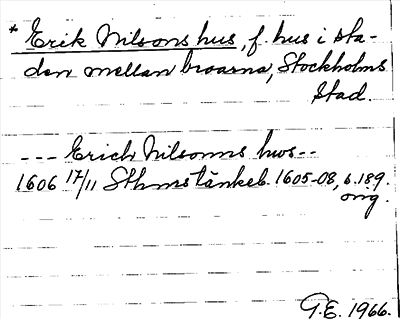 * Erik Nilsons hus, f. hus i sta-
den mellan broarna, Stockholms
stad.
--- Erich Nilsonns hws--
1606 17/11 Sthms tänkeb. 1605-08, s. 189.
orig.
G.E. 1966.